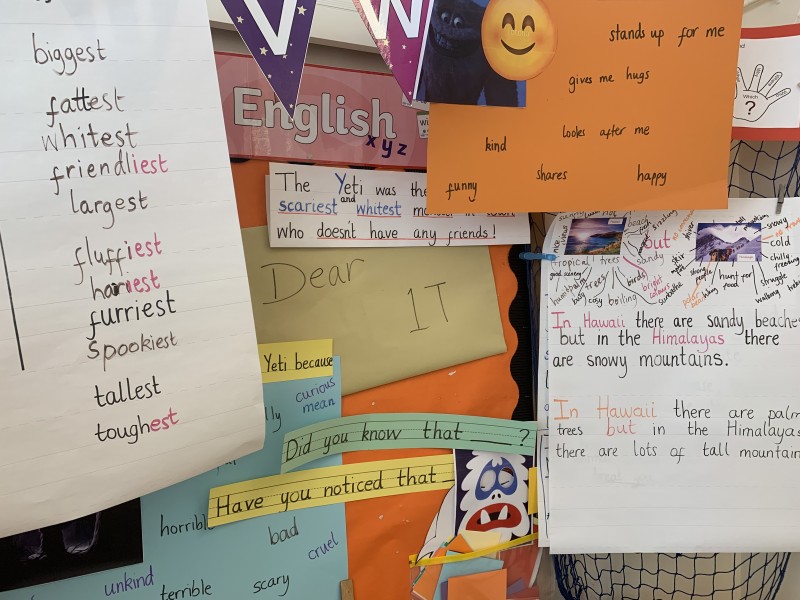 biggest
fattest
whitest
friendliest
largest
fluffiest
hairiest
furriest
Spookiest
tallest
toughest
V
W
English
x y z
The Yeti was the
scariest and whitest
who doesn't have any friends!
Dear
1T
Yeti because
curious
mean
Did you know that ___?
Have you noticed that
horrible
bad
cruel
unkind
terrible
scary
stands up for me
gives me hugs
kind
looks after me
funny
shares
happy
Which
?
but
beach
sandy
tropical
trees
birds
bright
colours
cosy
boiling
busy
snowy
cold
chilly
freezing
struggle
walking
hunt for
food
strong
people
In Hawaii there are sandy beache
but in the Himalayas there
are snowy mountains.
In Hawaii there are palm
trees but in the Himalayas
there are lots of tall mountain